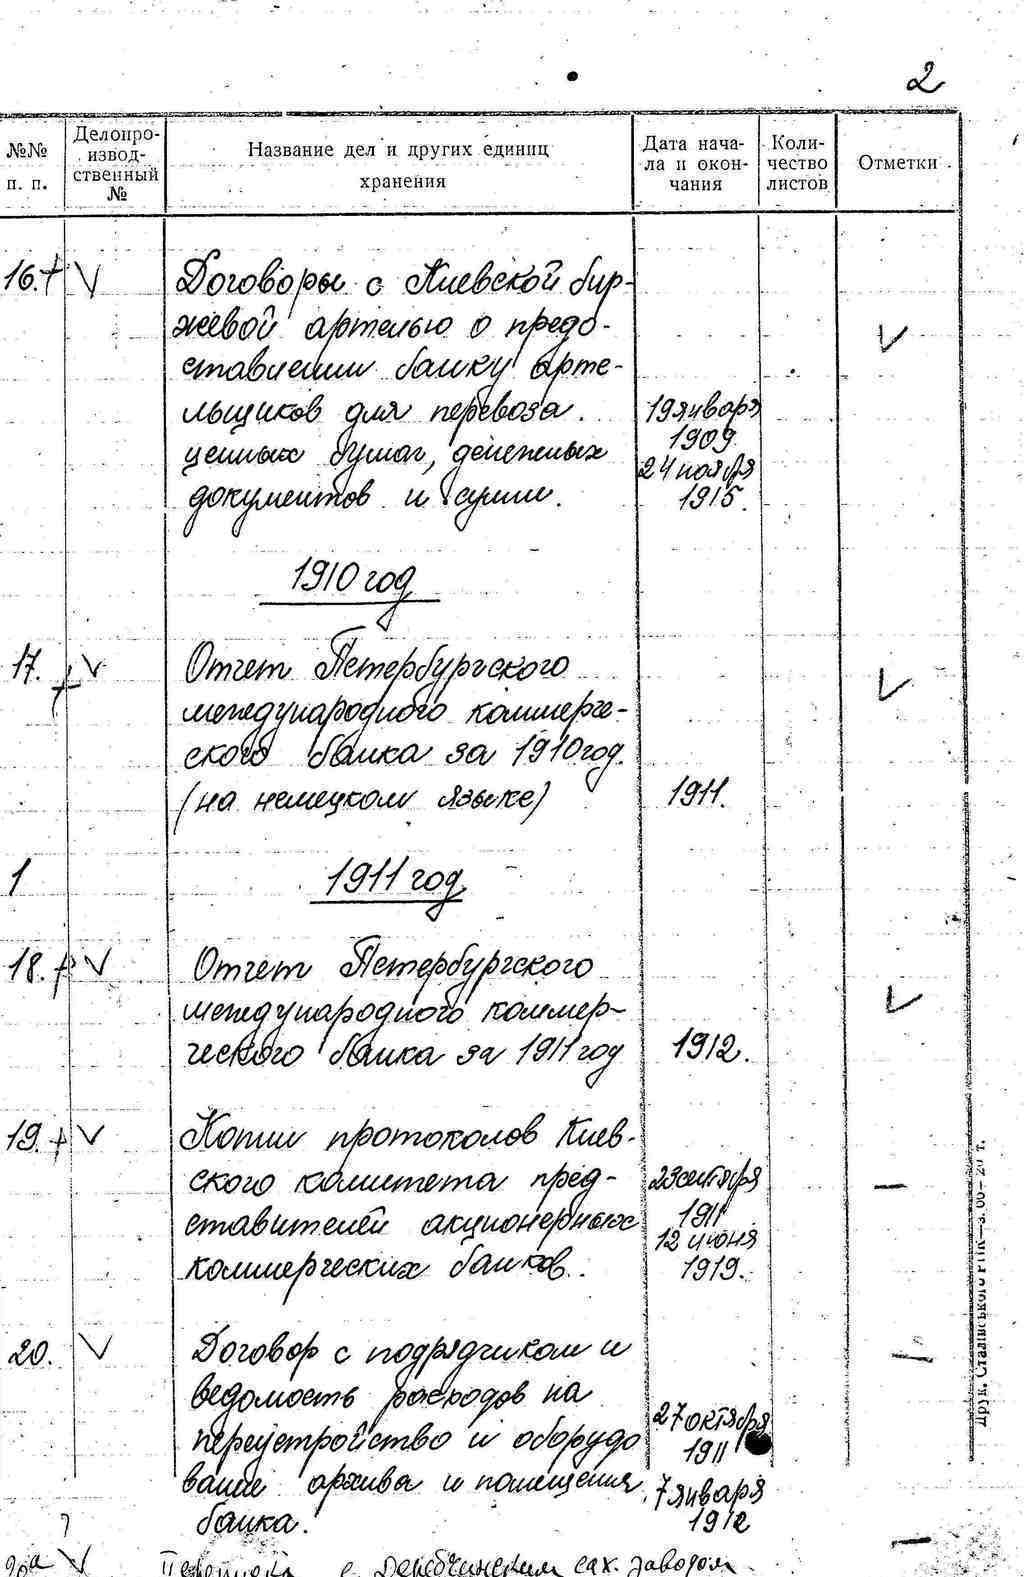 2
№№ п. п.
Делопро-
извод-
ственный
№
Название дел и других единиц
хранения
Дата нача-
ла и окон-
чания
Коли-
чество
листов
Отметки
16.+ V
Договоры с Киевской бир-
жевой артелью о предо-
ставлении банку арте-
льщиков для перевоза
ценных бумаг, денежных
документов и сумм.
19 января
1909
24 ноября
1915.
V
1910 год
17. + V
Отчет Петербургского
международного коммерче-
ского банка за 1910 год.
(на немецком языке)
1911.
V
1
1911 год
18. + V
Отчет Петербургского
международного коммер-
ческого банка за 1911 год
1912.
V
19. + V
Копии протоколов Киев-
ского комитета пред-
ставителей акционерных
коммерческих банков.
23 сентября
1911
12 июня
1919.
—
20. V
Договор с подрядчиком и
ведомость расходов на
переустройство и оборудо
вание архива и помещения
банка.
27 октября
1911
7 января
1912
—
?
20а V
Переписка с Деребчинским сах. заводом
—
Друк. Сталінського